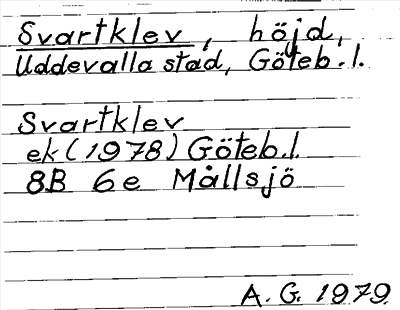 Svartklev, höjd,
Uddevalla stad, Göteb.l.
Svartklev
ek (1978) Göteb.l.
8B 6e Mållsjö
A. G. 1979.